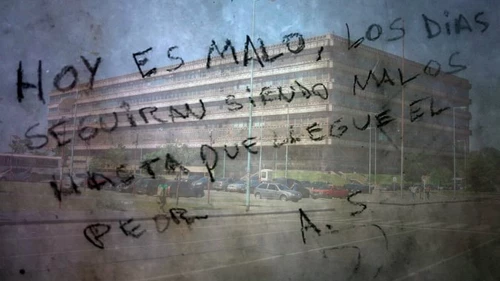 HOY ES MALO, LOS DÍAS
SEGUIRAN SIENDO MALOS
HASTA QUE LLEGUE EL
PEOR
A. S